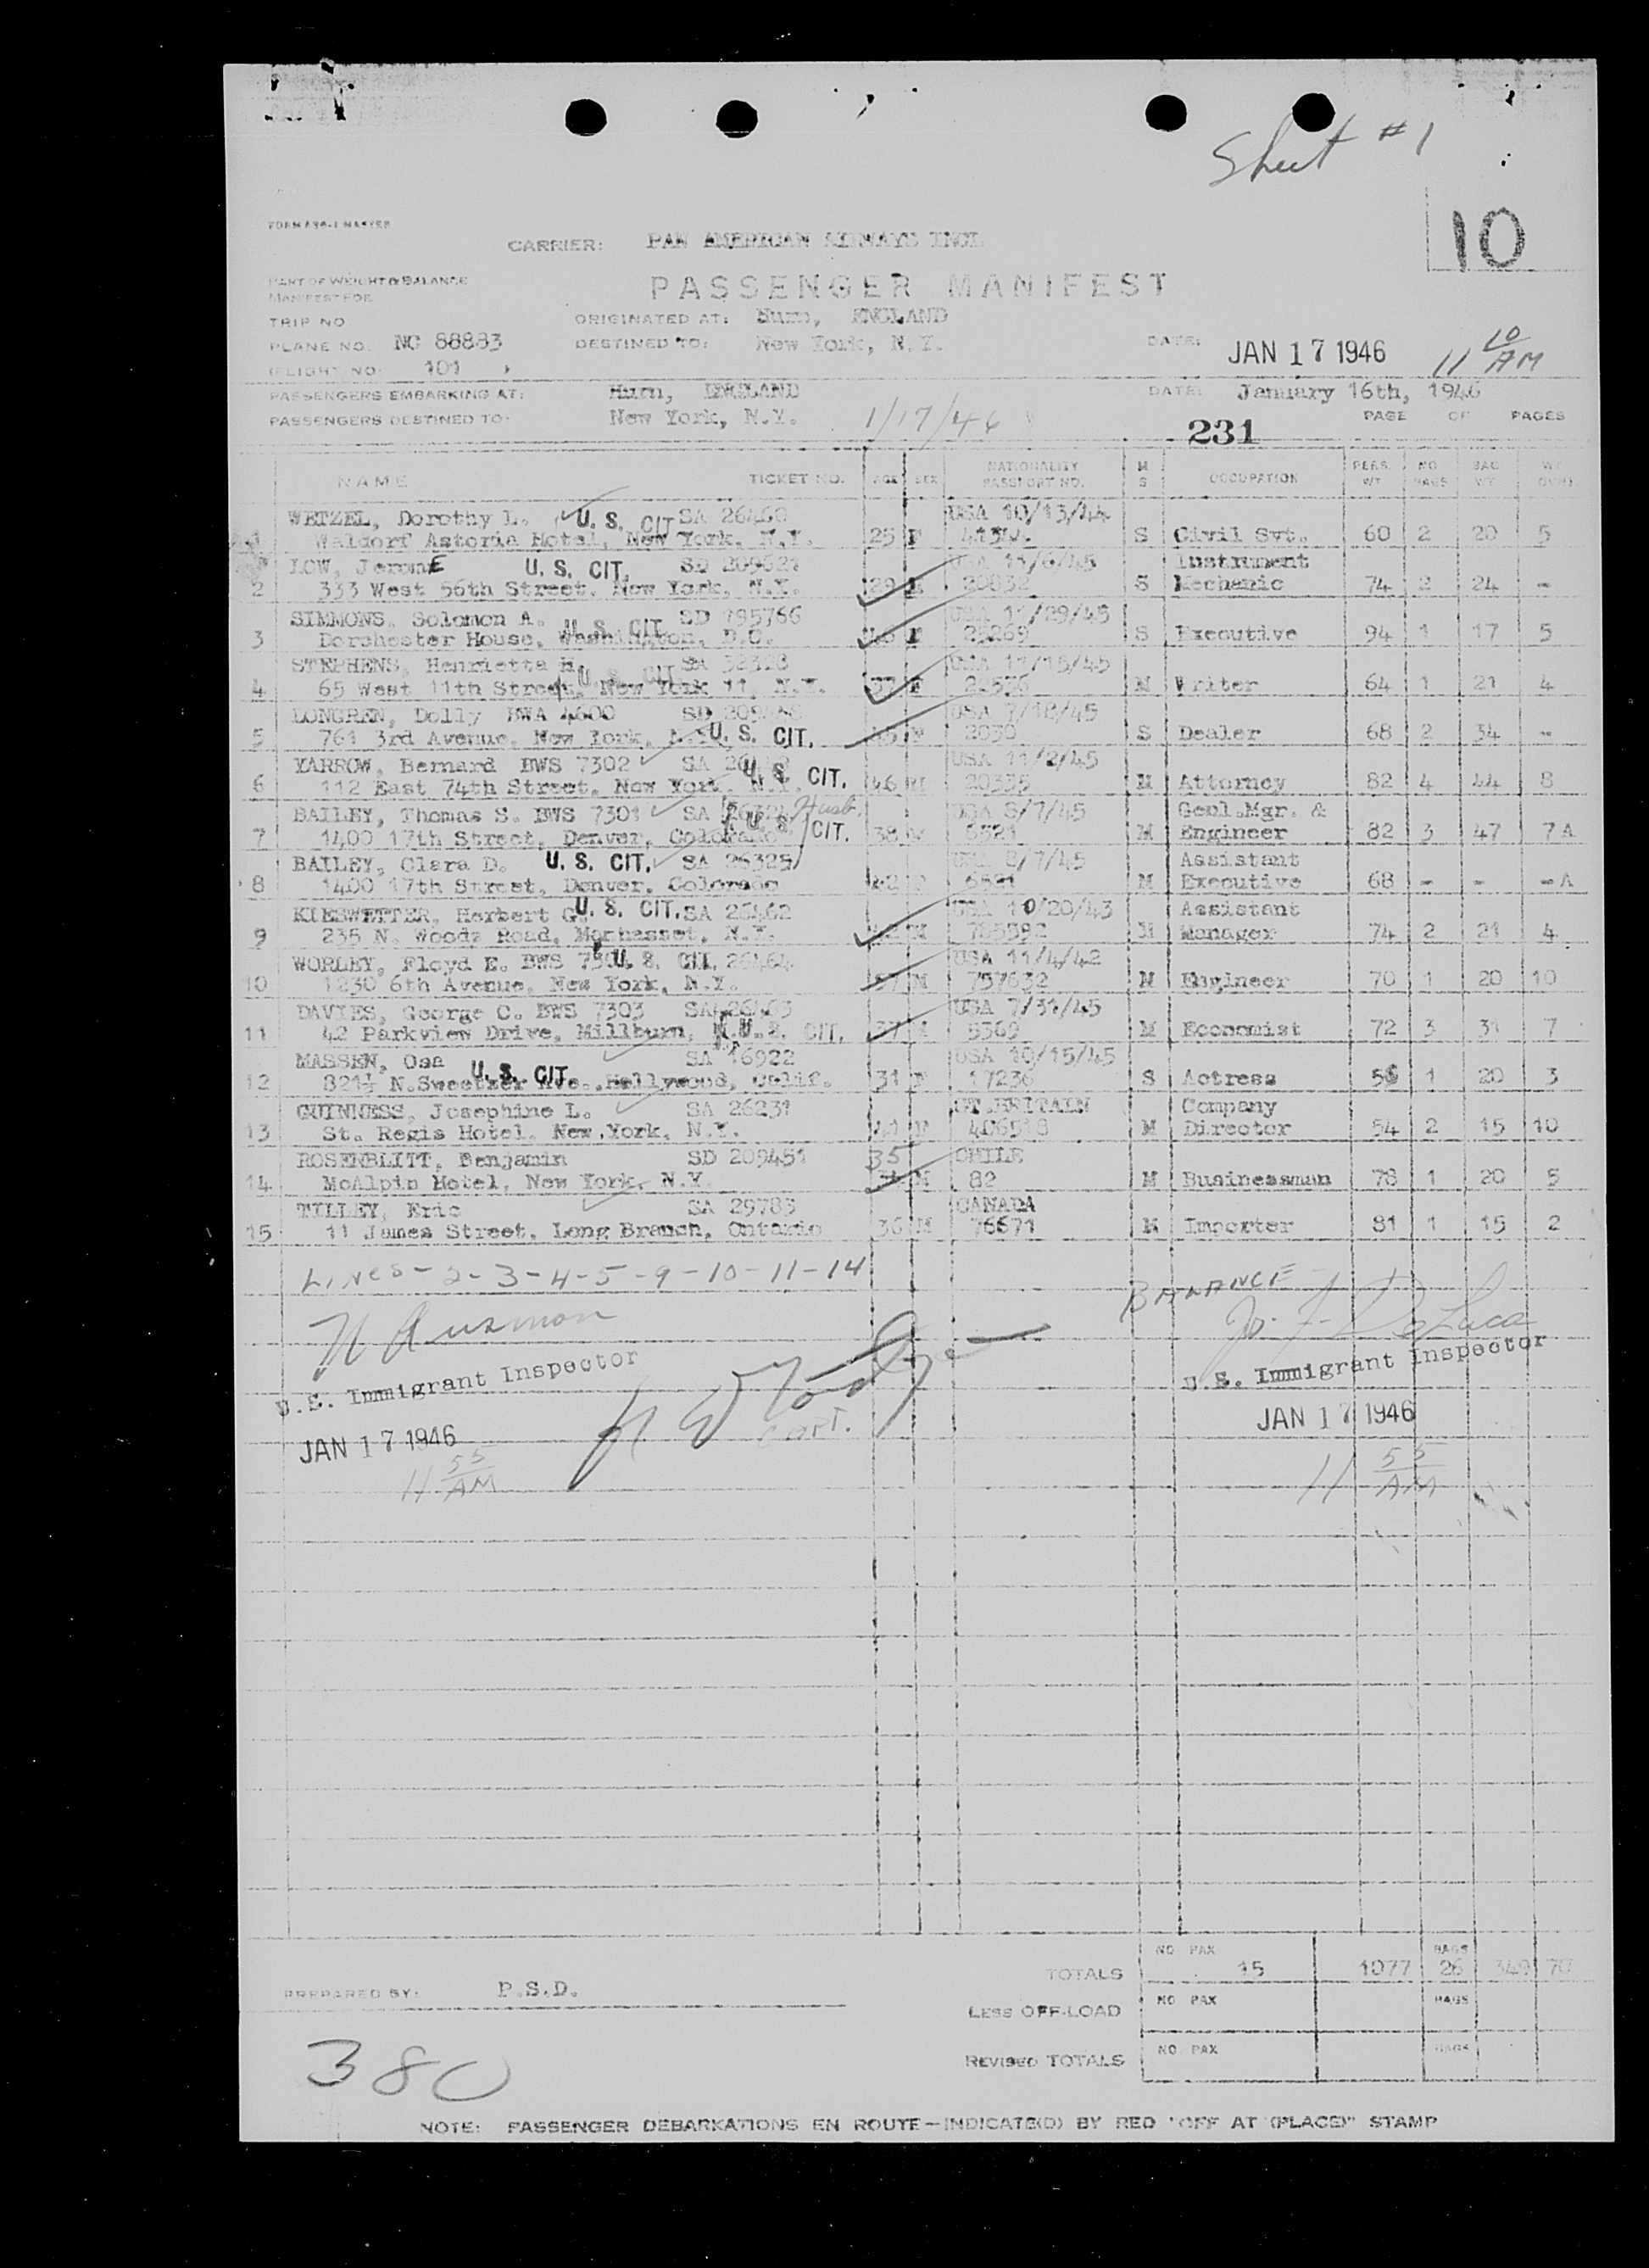 Sheet #1
10
FORM 636-1 MASTER
CARRIER: PAN AMERICAN AIRWAYS INC.
PART OF WEIGHT & BALANCE
MANIFEST FOR
PASSENGER MANIFEST
TRIP NO
ORIGINATED AT: Hurn, ENGLAND
PLANE NO. NC 88883
DESTINED TO: New York, N.Y.
DATE: JAN 17 1946 11 10 AM
FLIGHT NO. 101
PASSENGERS EMBARKING AT: Hurn, ENGLAND
DATE: January 16th, 1946
PASSENGERS DESTINED TO: New York, N.Y. 1/17/46
PAGE OF PAGES
231
NAME TICKET NO. AGE SEX NATIONALITY PASSPORT NO. M S OCCUPATION PERS. WT NO BAGS BAG WT
WETZEL, Dorothy L. U. S. CIT SA 26460 USA 10/13/44
Waldorf Astoria Hotel, New York, N.Y. 25 F S Civil Svt. 60 2 20 5
LOW, JeromE U. S. CIT. SD 209621 USA 11/6/45 Instrument
2 333 West 56th Street, New York, N.Y. 29 20032 S Mechanic 74 2 24 -
SIMMONS, Solomon A. U. S. CIT SD 195766 USA 11/29/45
3 Dorchester House, Washington, D.C. 25269 S Executive 94 1 17 5
STEPHENS, Henrietta H. U. S. CIT SA USA 11/15/45
4 65 West 11th Street, New York 11, N.Y. 37 F 22536 M Writer 64 1 21 4
LONGREN, Dolly BWA 4600 SD USA 7/18/45
5 761 3rd Avenue, New York, N.Y. U. S. CIT. F 2030 S Dealer 68 2 34 -
YARROW, Bernard BWS 7302 SA USA 11/2/45
6 112 East 74th Street, New York, N.Y. U. S. CIT. 46 M 20335 M Attorney 82 4 44 8
BAILEY, Thomas S. BWS 7301 SA 26324 Husb. USA 8/7/45 Genl.Mgr. &
7 1400 17th Street, Denver, Colorado U. S. CIT. 38 M 6521 M Engineer 82 3 47 7 A
BAILEY, Clara D. U. S. CIT. SA 26325 USA 8/7/45 Assistant
8 1400 17th Street, Denver, Colorado 42 F 6521 M Executive 68 - - - A
KIESWETTER, Herbert G. U. S. CIT. SA 26462 USA 10/20/43 Assistant
9 235 N. Woods Road, Manhasset, N.Y. M 785592 M Manager 74 2 21 4
WORLEY, Floyd E. BWS U. S. CIT. 26464 USA 11/4/42
10 1230 6th Avenue, New York, N.Y. 57 M 757632 M Engineer 70 1 20 10
DAVIES, George C. BWS 7303 SA 26463 USA 7/31/45
11 42 Parkview Drive, Millburn, N.J. U. S. CIT. 37 M 5369 M Economist 72 3 31 7
MASSEN, Osa U. S. CIT. SA 16922 USA 10/15/45
12 821½ N.Sweetzer Ave., Hollywood, Calif. 31 F 17236 S Actress 56 1 20 3
GUINNESS, Josephine L. SA 26231 GT.BRITAIN Company
13 St. Regis Hotel, New York, N.Y. 41 F 406518 M Director 54 2 15 10
ROSENBLITT, Benjamin SD 209451 35 CHILE
14 McAlpin Hotel, New York, N.Y. M 82 M Businessman 78 1 20 5
TILLEY, Eric SA 29785 CANADA
15 11 James Street, Long Branch, Ontario 36 M 76671 M Importer 81 1 15 2
LINES - 2 - 3 - 4 - 5 - 9 - 10 - 11 - 14
BALANCE
Jo. F. DeLuca
U.S. Immigrant Inspector
U.S. Immigrant Inspector
CAPT.
JAN 17 1946
JAN 17 1946
11 55 AM
11 55 AM
TOTALS NO PAX 15 1077 BAGS 26 349 70
PREPARED BY: P.S.D.
LESS OFF-LOAD NO PAX BAGS
REVISED TOTALS NO PAX BAGS
380
NOTE: PASSENGER DEBARKATIONS EN ROUTE—INDICATE(D) BY RED "OFF AT (PLACE)" STAMP